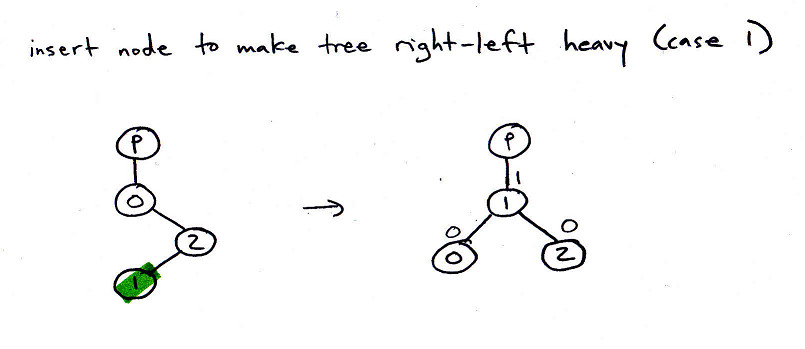 insert node to make tree right-left heavy (case 1)
P
0
2
1
→
P
1
1
0
0
0
2